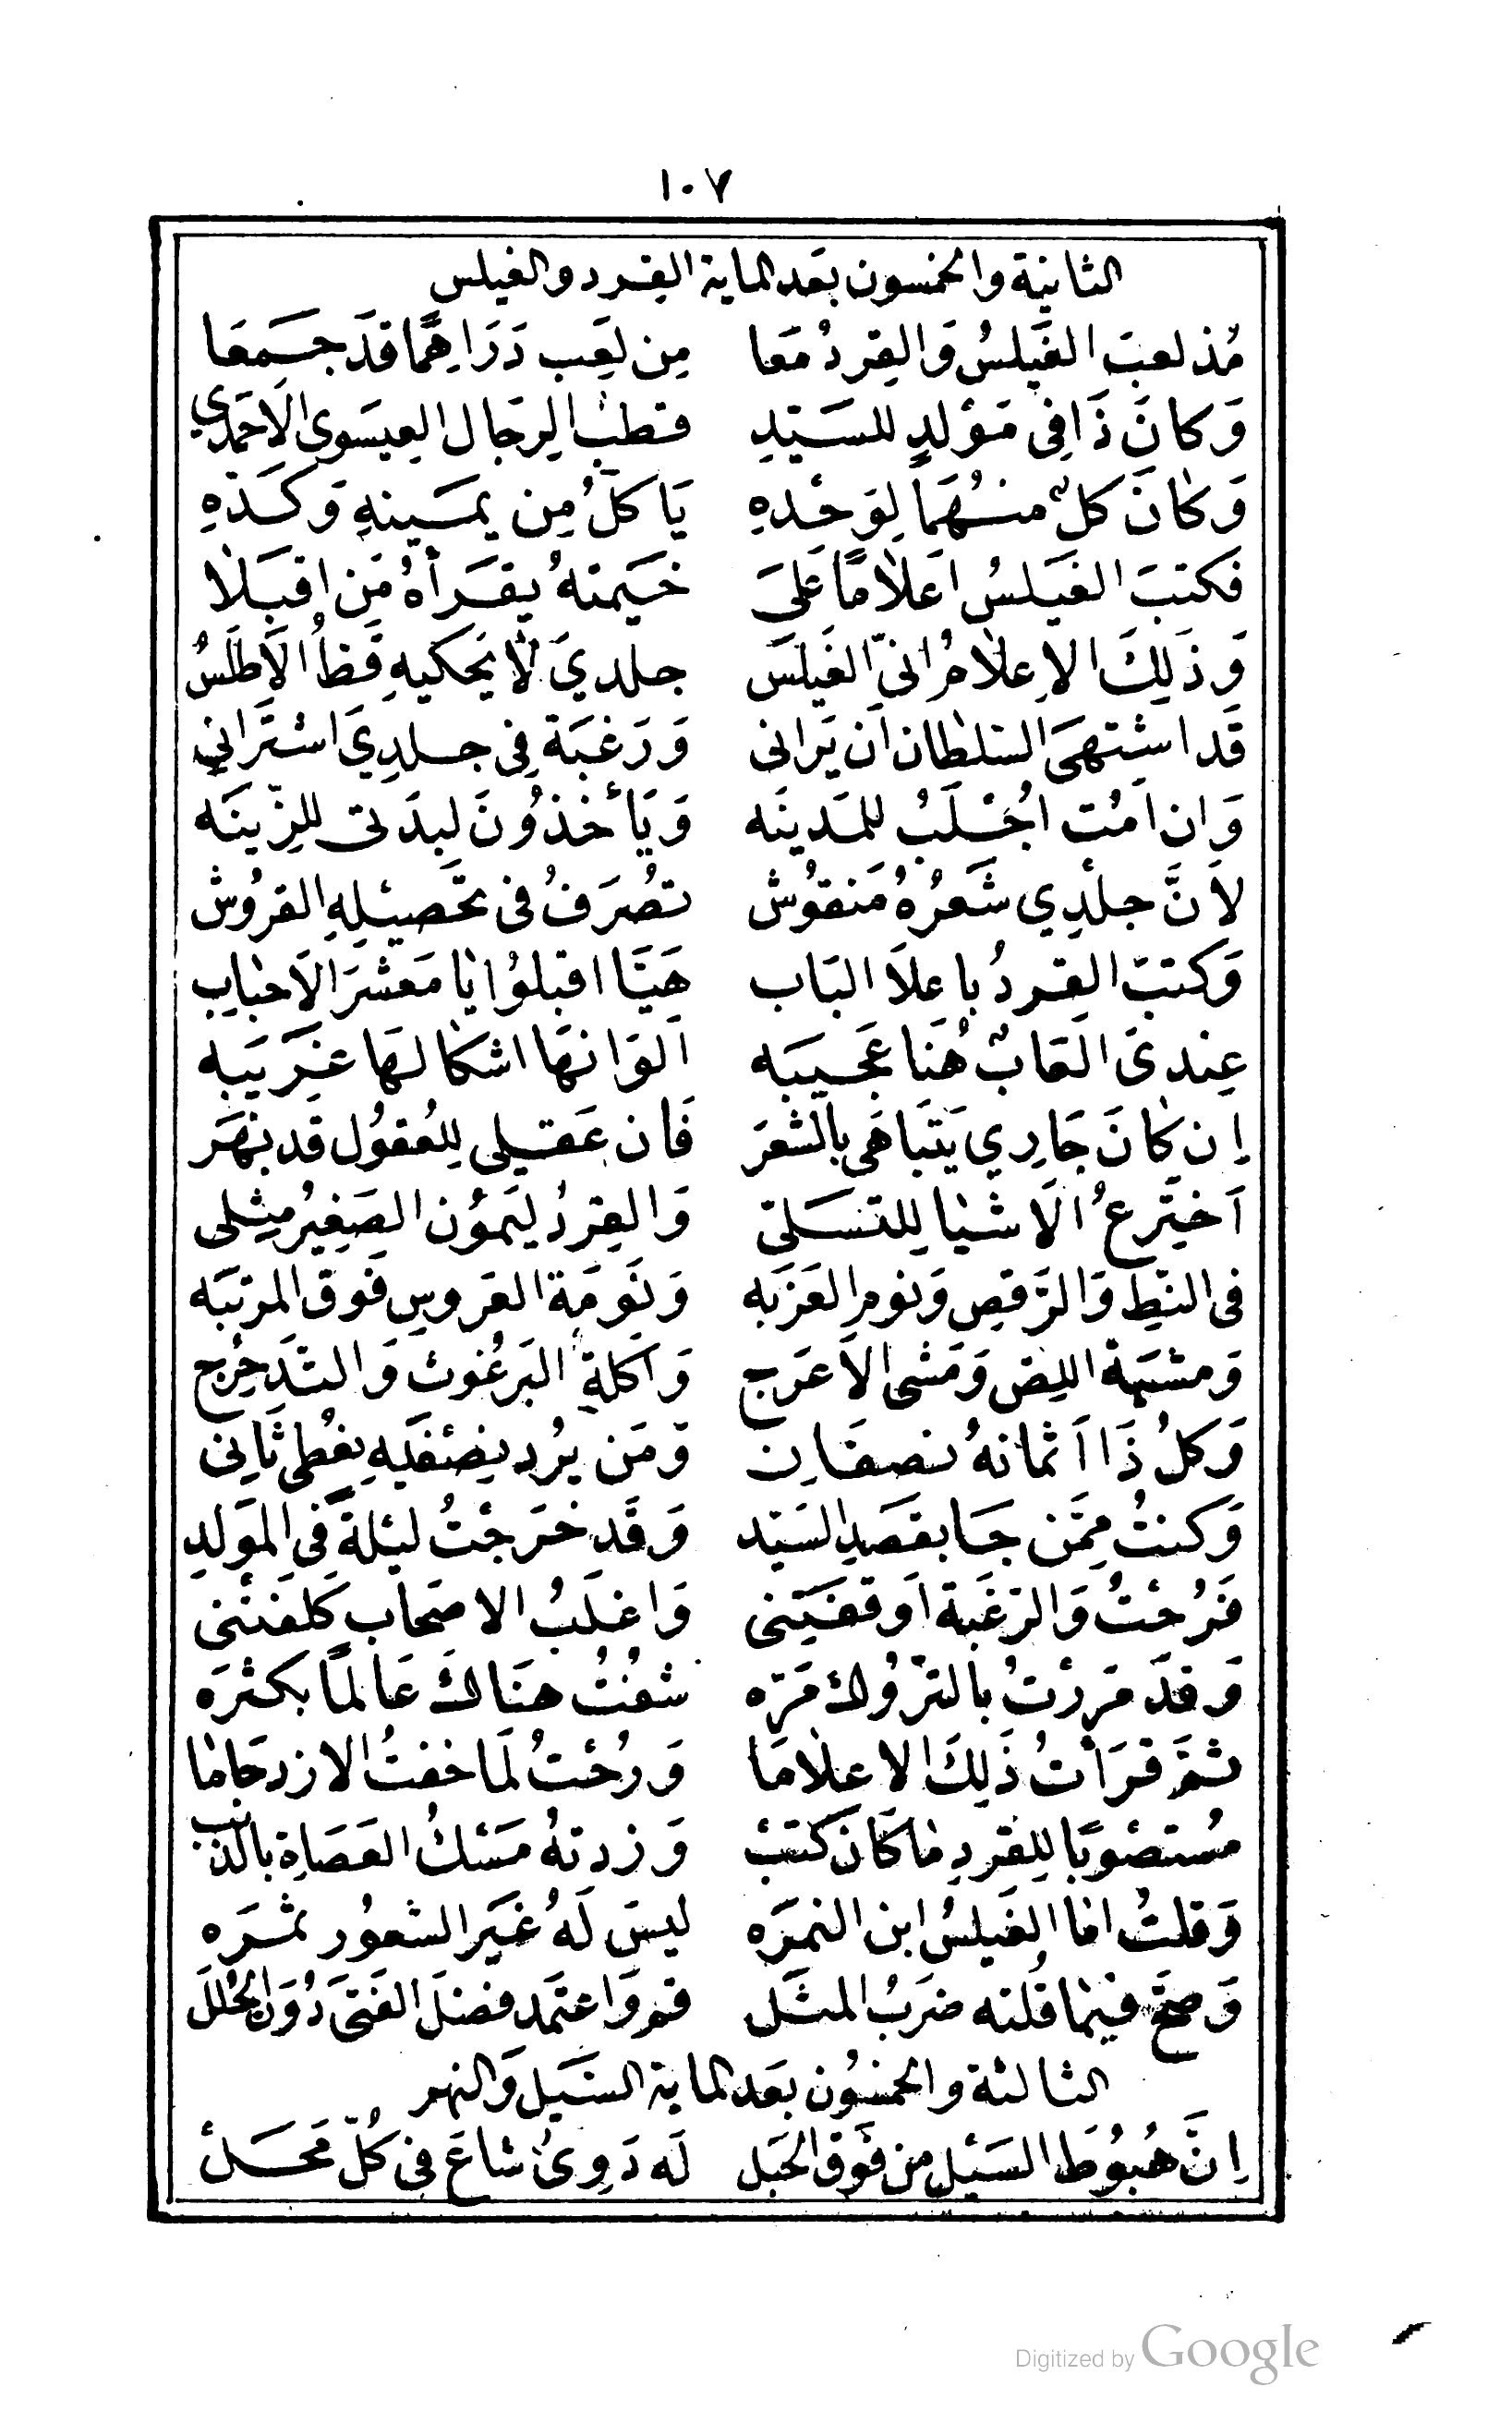 ١٠٧
الثانية والخمسون بعد الماية القرد والغيلس
مُذ لعبَ الغَيلسُ وَالقِردُ مَعا مِن لَعِب دَرَاهِمًا قَد جَمَعَا
وَكانَ ذَا فِي مَوْلدٍ للسَيّدِ قطبُ الرِجَال العِيسَوى الاَحمَدي
وَكانَ كلٌ منهُمَا لِوَحْدهِ يَاكلُ مِن يمَينهِ وَكَدّهِ
فكتبَ الغيَلسُ اعَلامًا عَلىَ خَيمَتهُ يقرَأهُ مَن اقبَلا
وَذَلِكَ الاِعلامُ انىّ الغَيلَس جلدىَ لا يَحكيهِ قَطُ الاَطلَسُ
قَد اشتهىَ السلطان اَن يَرانى وَرَغبَة فِى جلدِىَ اشتَرانِى
وَان اَمُت اُجْلَبُ للمَدينَه وَيَأخذوُنَ لبدَتى للزّينَه
لاَنَّ جلدِي شَعرُهُ مَنقوُش تصُرَفُ فى تحَصيلِهِ القرُوش
وَكتبَ القردُ باعلاَ البَاب هَيّا اقبلوُا يا مَعشَرَ الاَحبابِ
عِندىَ العَابٌ هُنَا عَجيبَه اَلوَانهَا اشكالهَا غَريَبه
اِن كانَ جَارِي يَتَبَاهَى بالشعرَ فَان عَقلى للِعُقوُل قَد بَهَر
اَختَرعُ الاَشيا لِلتسَلىّ وَالقِردُ لَيموُن الصَغِيرُ مِثلى
فى النطِّ وَالرَّقصِ وَنومِ العَزَبه وَنَومَة العَروسِ فَوق المرتبَه
وَمشيَة اللِص وَمَشى الاَعرَج وَاكلةِ البَرغُوث وَالتدَحرُج
وَكلُ ذَا اَثمانهُ نصفَانِ وَمَن يرُد بنِصْفَيهِ يعُطى ثَانِى
وَكنتُ مِمَّن جَا بقصَدِ السَيّد وَقَد خَرَجْتُ ليْلةً فى المَولدِ
فَرُحْتُ وَالرَغبَة اَوقفَتَنى وَاغلَبُ الاصحَاب كَلفتْنى
وَقَد مَررْتُ بالتَرْوك مَرّه شفُتُ هنَاكَ عَالماً بكثرَه
ثمَّ قرَأتُ ذَلِكَ الاعلاما وَرُحْتُ لَما خفتُ الازدحاما
مُستصْوِبًا لِلقرد ما كانَ كتَبْ وَزدتهُ مَسْكُ العَصَاةِ بالذنب
وَقلتُ اما الغَيلسُ ابن النمرَه ليسَ لَهُ غَيرَ الشعوُر ثمَرَه
وَصحّ فيما قُلته ضرَبُ المثَل قم وَاعتَمد فضلَ الفَتىَ دُونَ الحُلَل
الثالثة والخمسوُن بعَد الماية السَيل وَالنهر
اِنَّ هُبوُطَ السَيْلِ من فَوَق الجَبل لَه دَوِىٌ شاعَ فى كُلّ مَحَلْ
Digitized by Google